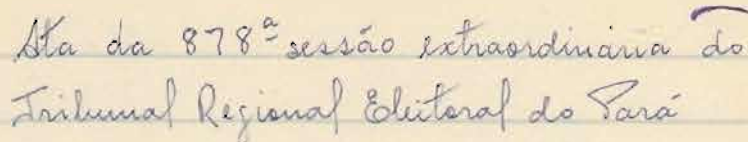 Ata da 878ª sessão extraordinária do
Tribunal Regional Eleitoral do Pará